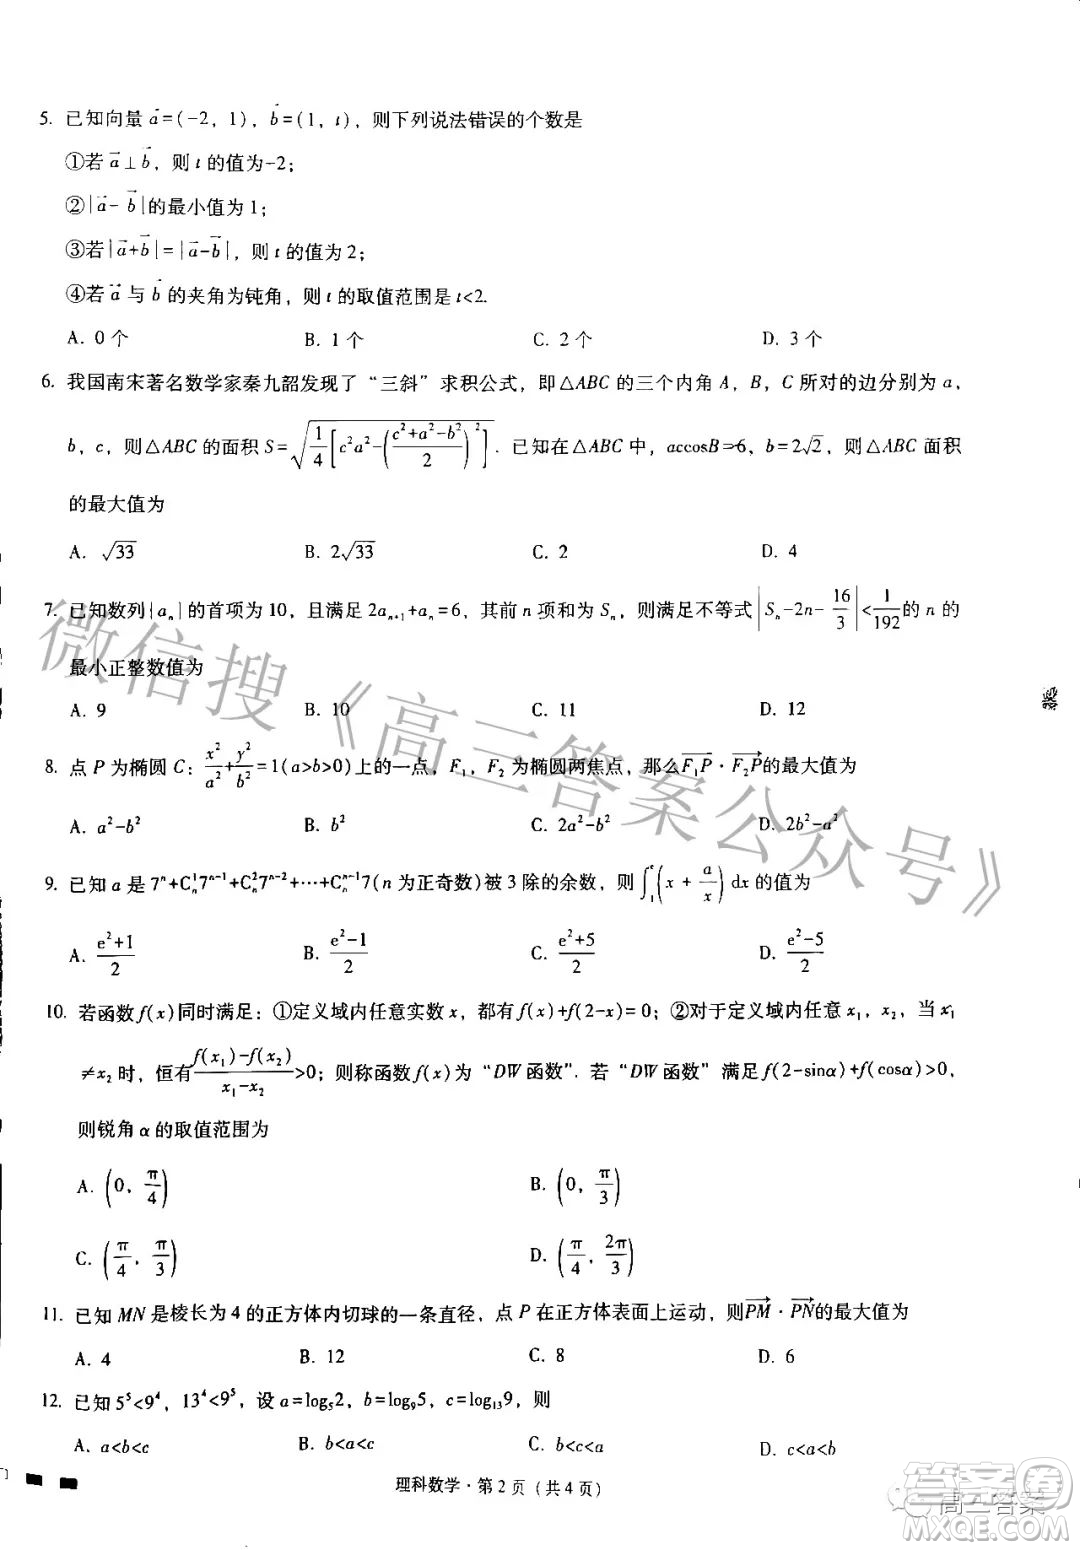 5. 已知向量 a⃗=(-2, 1), b⃗=(1, t), 则下列说法错误的个数是
①若 a⃗⊥b⃗, 则 t 的值为-2;
②|a⃗-b⃗|的最小值为 1;
③若|a⃗+b⃗|=|a⃗-b⃗|, 则 t 的值为 2;
④若 a⃗ 与 b⃗ 的夹角为钝角, 则 t 的取值范围是 t<2.
A. 0 个 B. 1 个 C. 2 个 D. 3 个
6. 我国南宋著名数学家秦九韶发现了“三斜”求积公式, 即△ABC 的三个内角 A, B, C 所对的边分别为 a,
b, c, 则△ABC 的面积 S=√(1/4[c²a²-((c²+a²-b²)/2)²]). 已知在△ABC 中, accosB=6, b=2√2, 则△ABC 面积
的最大值为
A. √33 B. 2√33 C. 2 D. 4
7. 已知数列{aₙ}的首项为 10, 且满足 2aₙ₊₁+aₙ=6, 其前 n 项和为 Sₙ, 则满足不等式|Sₙ-2n-16/3|<1/192的 n 的
最小正整数值为
A. 9 B. 10 C. 11 D. 12
8. 点 P 为椭圆 C: x²/a²+y²/b²=1(a>b>0)上的一点, F₁, F₂ 为椭圆两焦点, 那么F₁P⃗·F₂P⃗的最大值为
A. a²-b² B. b² C. 2a²-b² D. 2b²-a²
9. 已知 a 是 7ⁿ+C¹ₙ7ⁿ⁻¹+C²ₙ7ⁿ⁻²+⋯+Cⁿ⁻¹ₙ7(n 为正奇数)被 3 除的余数, 则∫₁ᵉ(x+a/x)dx 的值为
A. (e²+1)/2 B. (e²-1)/2 C. (e²+5)/2 D. (e²-5)/2
10. 若函数 f(x)同时满足: ①定义域内任意实数 x, 都有 f(x)+f(2-x)=0; ②对于定义域内任意 x₁, x₂, 当 x₁
≠x₂ 时, 恒有(f(x₁)-f(x₂))/(x₁-x₂)>0; 则称函数 f(x)为“DW 函数”. 若“DW 函数”满足 f(2-sinα)+f(cosα)>0,
则锐角 α 的取值范围为
A. (0, π/4) B. (0, π/3)
C. (π/4, π/3) D. (π/4, 2π/3)
11. 已知 MN 是棱长为 4 的正方体内切球的一条直径, 点 P 在正方体表面上运动, 则PM⃗·PN⃗的最大值为
A. 4 B. 12 C. 8 D. 6
12. 已知 5⁵<9⁴, 13⁴<9⁵, 设 a=log₅2, b=log₉5, c=log₁₃9, 则
A. a<b<c B. b<a<c C. b<c<a D. c<a<b
理科数学·第 2 页(共 4 页)
微信搜《高三答案公众号》
高三答案
答案圈
MXQE.COM